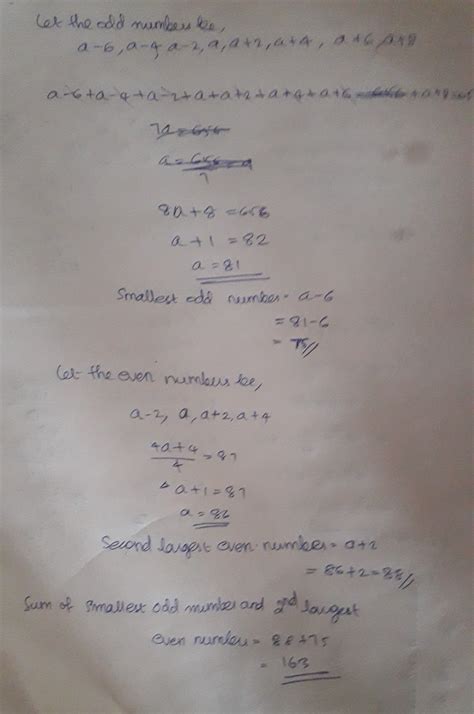 Let the odd numbers be,
a-6, a-4, a-2, a, a+2, a+4, a+6, a+8
a-6+a-4+a-2+a+a+2+a+4+a+6 = 656 +a+8=656
7a=656
a=656 = a
7
8a+8 = 656
a+1 = 82
a = 81
Smallest odd number = a-6
= 81-6
= 75//
Let the even numbers be,
a-2, a, a+2, a+4
4a+4
4
= 87
a+1 = 87
a = 86
Second largest even number = a+2
= 86+2 = 88//
Sum of smallest odd number and 2nd largest
even number = 88+75
= 163